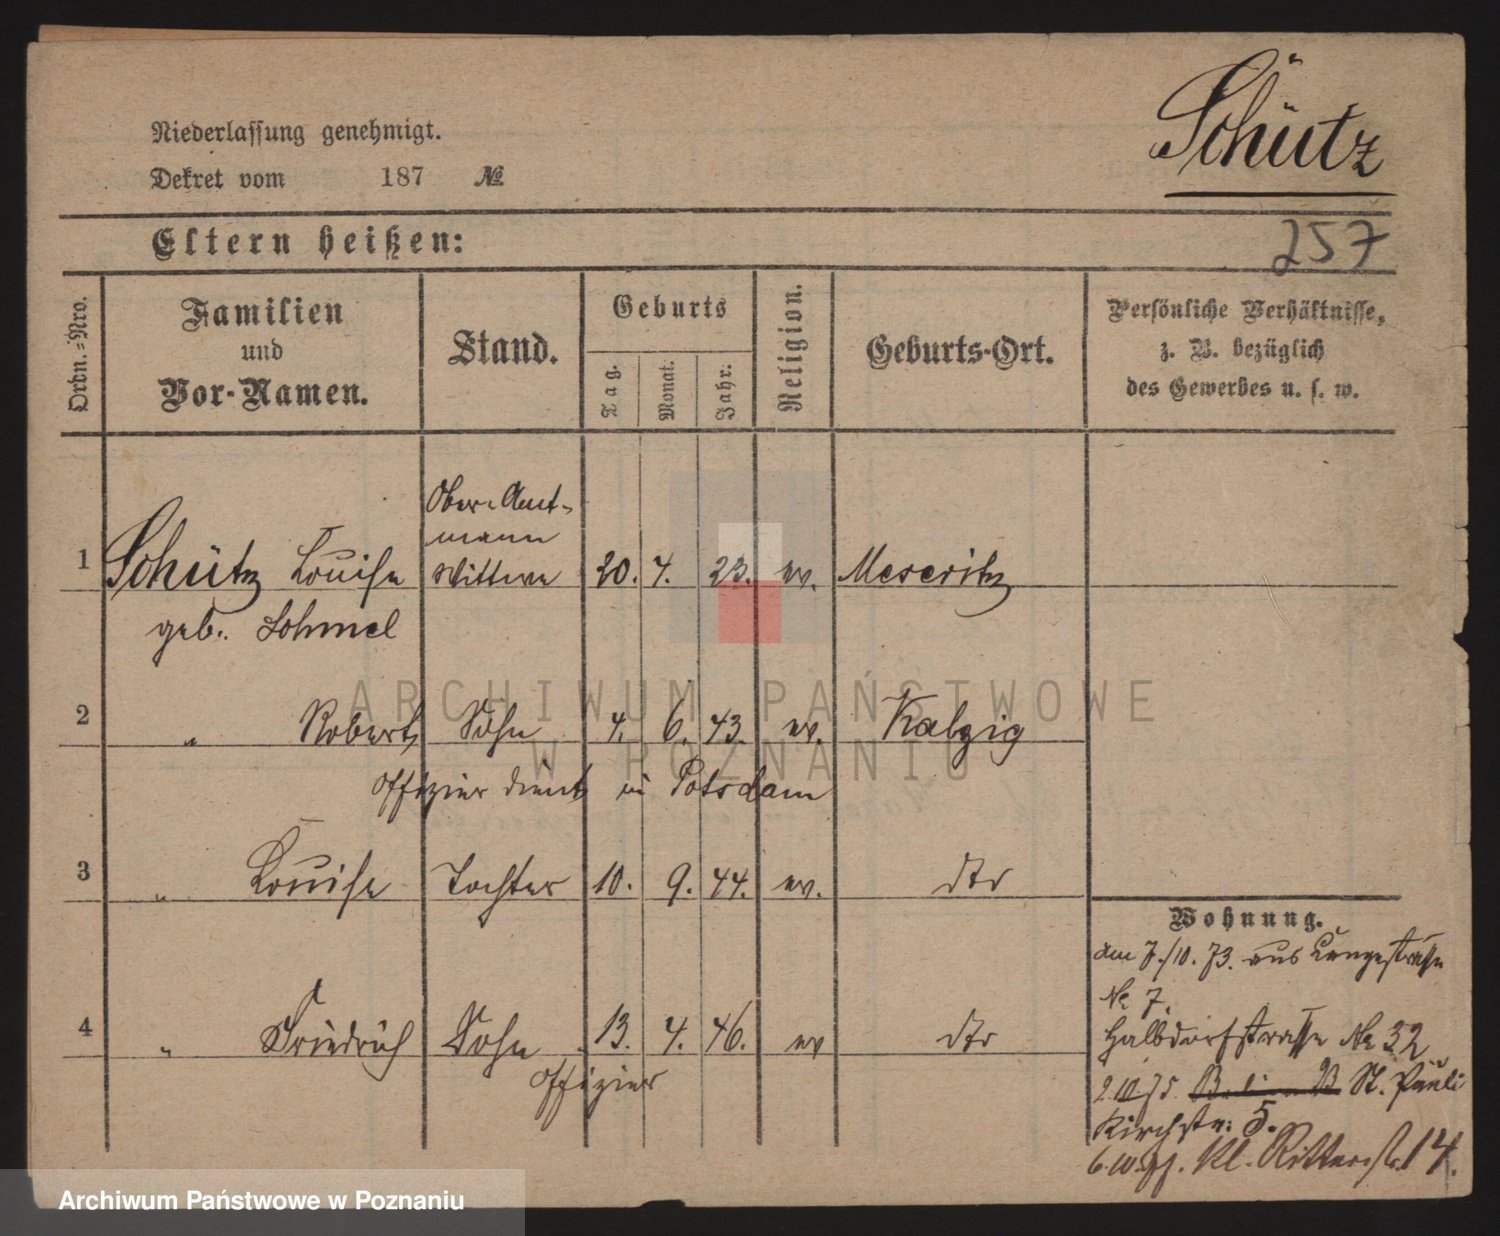 Schütz
Niederlassung genehmigt.
Dekret vom 187 №
Eltern heißen:
257
Ordn.-Nro.
Familien
und
Vor-Namen.
Stand.
Geburts
Tag.
Monat.
Jahr.
Religion.
Geburts-Ort.
Persönliche Verhältnisse,
z. B. bezüglich
des Gewerbes u. s. w.
Ober-Amt-
mann
1 Schütz Louise Wittwe 20. 7. 23. ev. Meseritz
geb. Lohmel
2 " Robert Sohn 4. 6. 43. ev. Kalzig
Offizier dient in Potsdam
3 " Louise Tochter 10. 9. 44. ev. dto
4 " Friedrich Sohn 13. 4. 46. ev dto
Offizier
Wohnung.
am 7./10. 73. aus Langestrasse
№ 7.
Halbdorfstrasse № 32
2.10.75. St. Pauli
Kirchstr: 5.
Kl. Ritterstr. 14.
ARCHIWUM PAŃSTWOWE
W POZNANIU
Archiwum Państwowe w Poznaniu